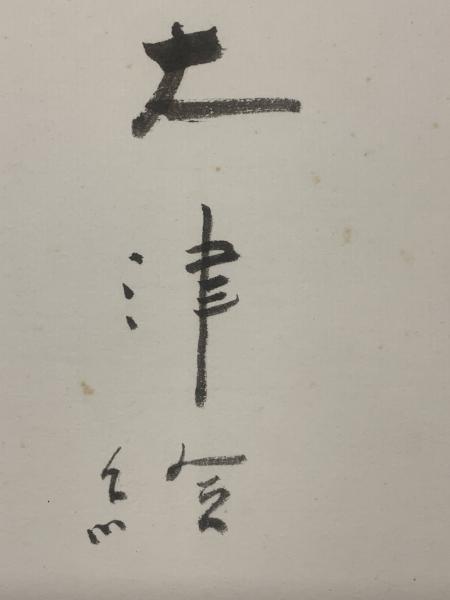 大津絵